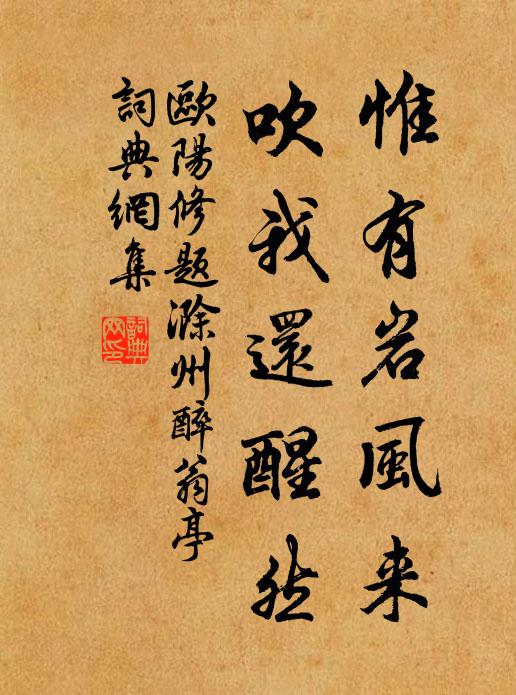 惟有岩風来
吹我還醒然
歐陽修題滁州醉翁亭
詞典網集
詞典
网印